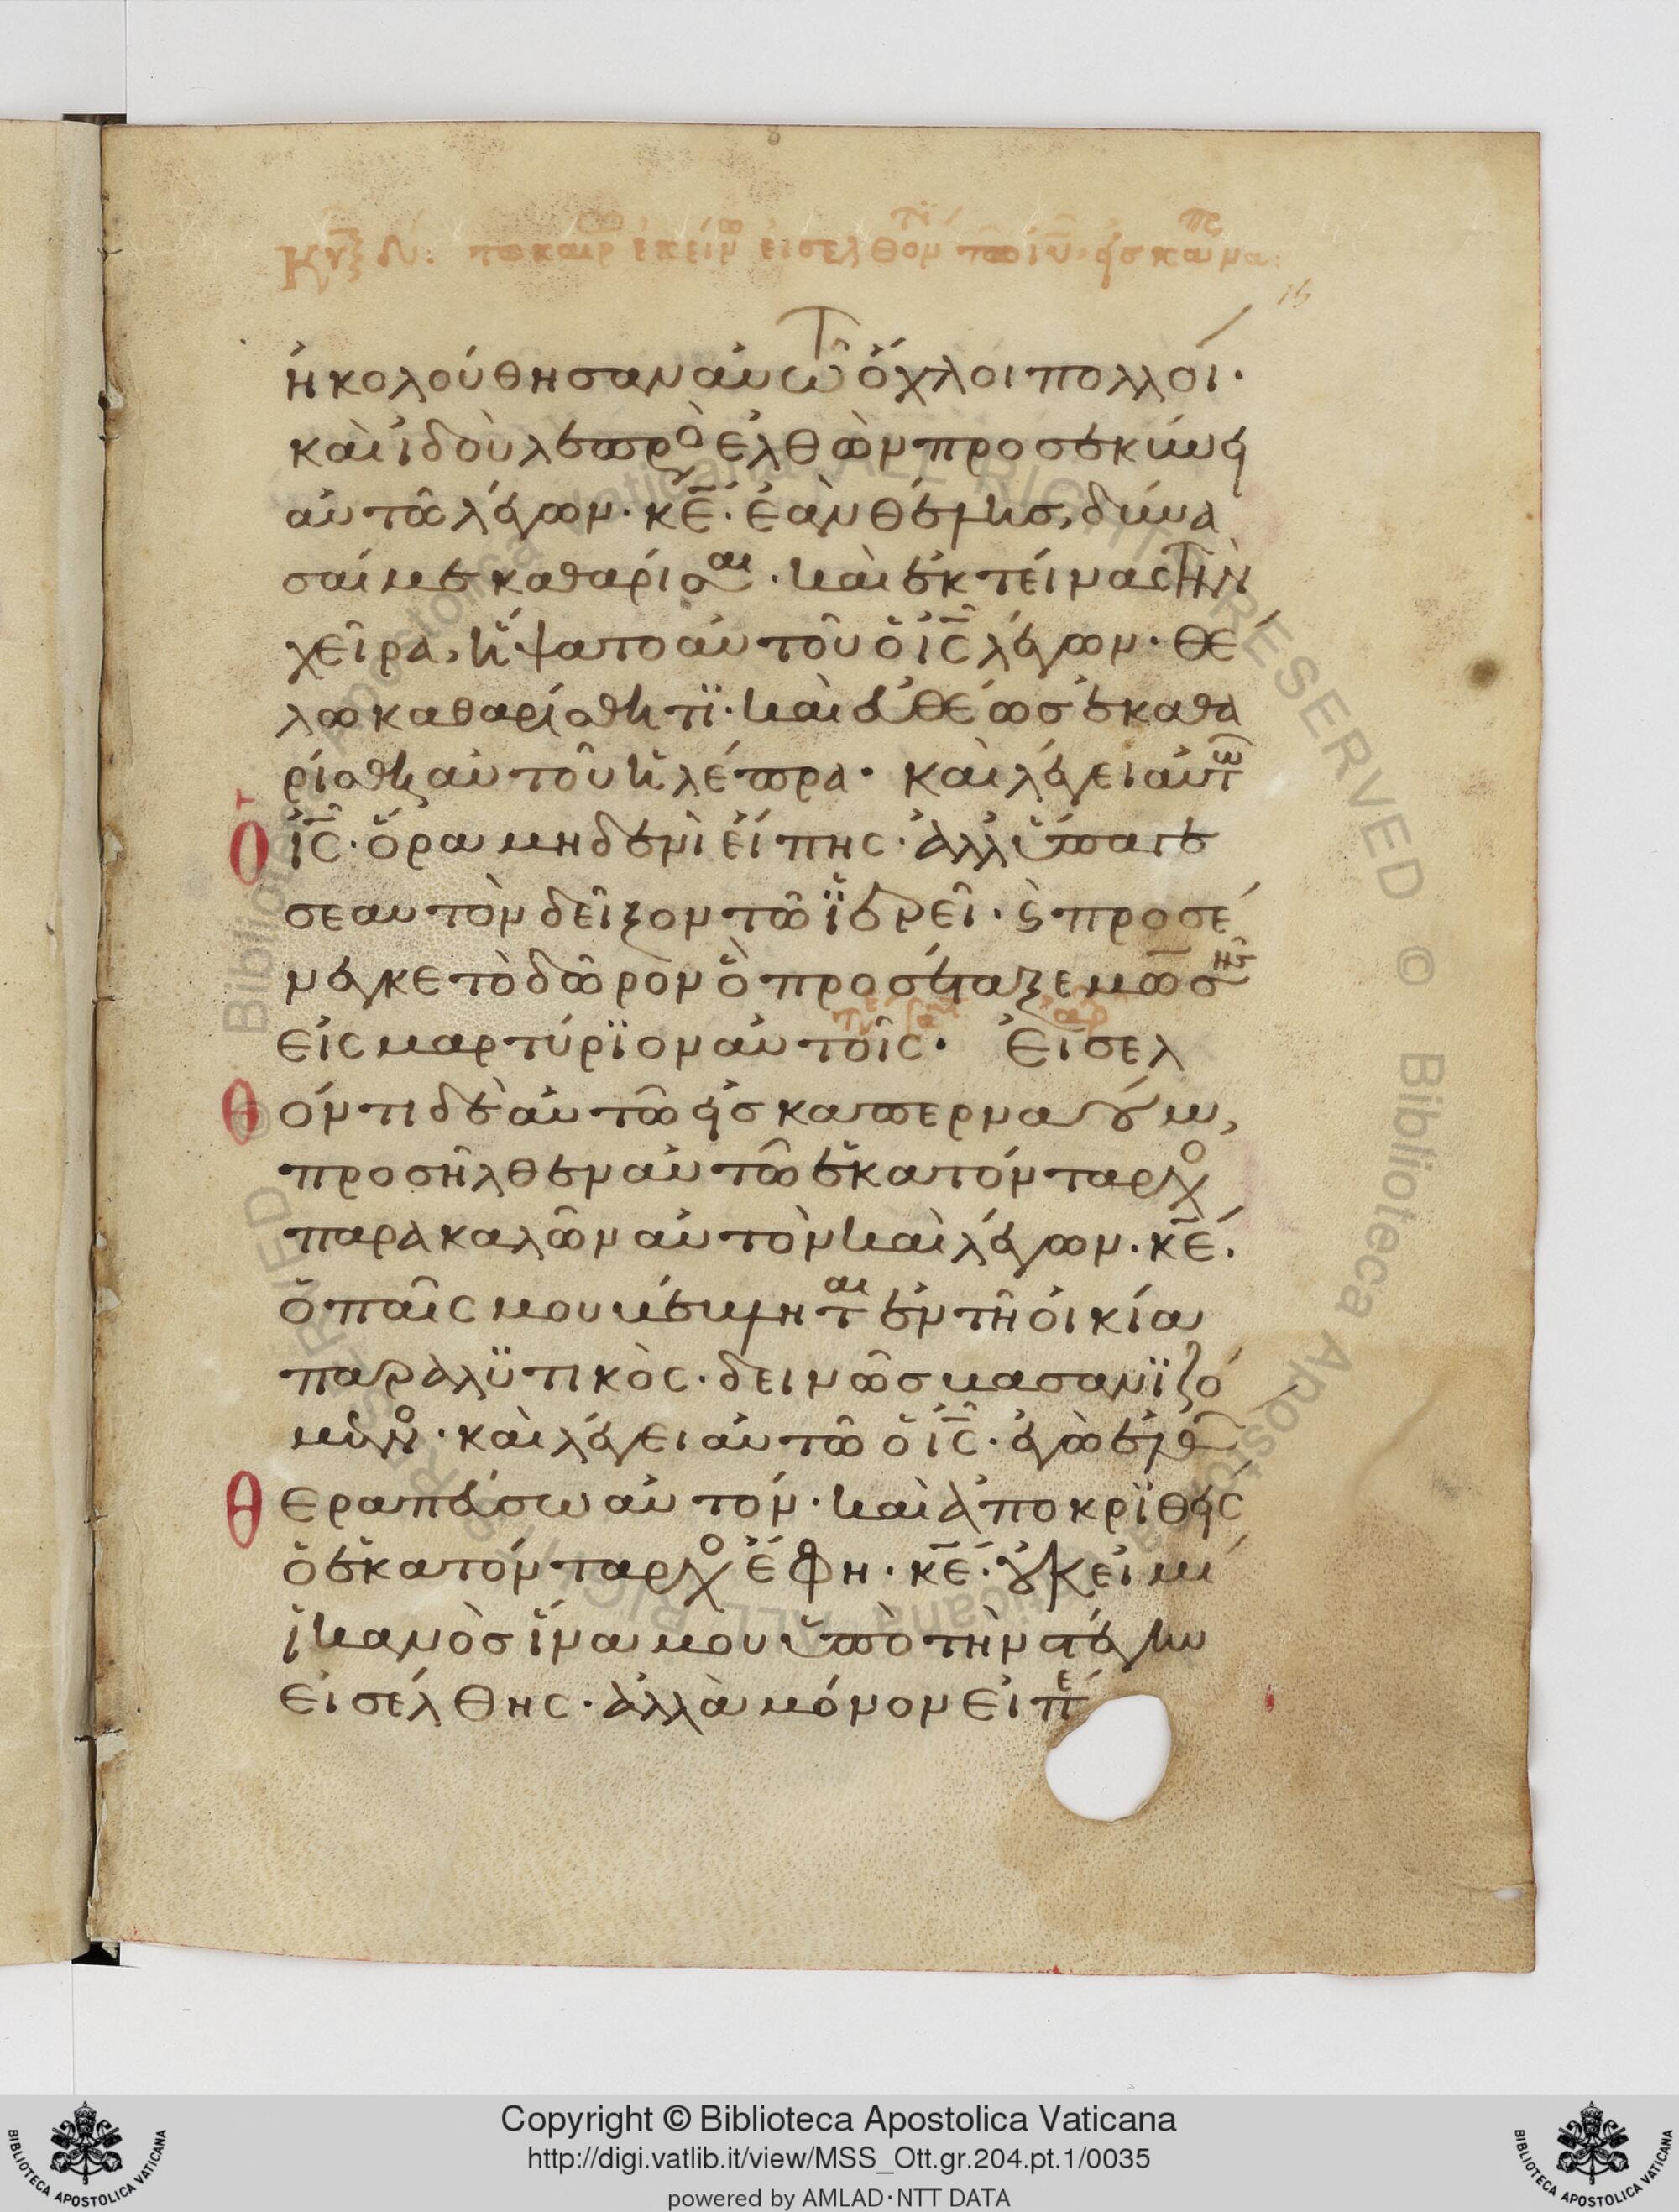 ἠκολούθησαν αὐτῶ ὄχλοι πολλοί·
καὶ ἰδοὺ λεπρὸ ἐλθὼν προσεκύνει
αὐτῶ λέγων· κε̄· ἐὰν θέλης, δύνα
σαί με καθαρίσαι· καὶ ἐκτείνας τὴν
χεῖρα, ἥψατο αὐτοῦ ὁ ις̄ λέγων· θέ
λω καθαρίσθητϊ· καὶ εὐθέως ἐκαθα
ρίσθη αὐτοῦ ἡ λέπρα· καὶ λέγει αὐτῶ
Ο ις̄· ὅρα μηδενὶ εἴπης· ἀλλ ὕπαγε
σεαυτὸν δεῖξον τῶ ϊερεῖ· ϗ προσέ
νεγκε τὸ δῶρον ὃ προσέταξε μωσῆς
εἰς μαρτύρϊον αὐτοῖς· Εἰσελ
Θόντι δὲ αὐτῶ εἰς καπερναούμ,
προσῆλθεν αὐτῶ ἑκατόνταρχο
παρακαλῶν αὐτὸν καὶ λέγων· κε̄·
ὁ παῖς μου βέβληται ἐν τῆ οἰκία
παραλϋτικὸς· δεινῶς βασανϊζό
μενο· καὶ λέγει αὐτῶ ὁ ις̄· ἐγὼ ἐλθὼν
Θεραπεύσω αὐτόν· καὶ ἀποκρϊθεὶς
ὁ ἑκατόνταρχο ἔφη· κε̄· οὐκ εἰμὶ
ἱκανὸς ἵνα μου ὑπὸ τὴν στέγην
εἰσέλθης· ἀλλὰ μόνον εἰπὲ
Copyright © Biblioteca Apostolica Vaticana
http://digi.vatlib.it/view/MSS_Ott.gr.204.pt.1/0035
powered by AMLAD·NTT DATA
BIBLIOTECA APOSTOLICA VATICANA
BIBLIOTECA APOSTOLICA VATICANA